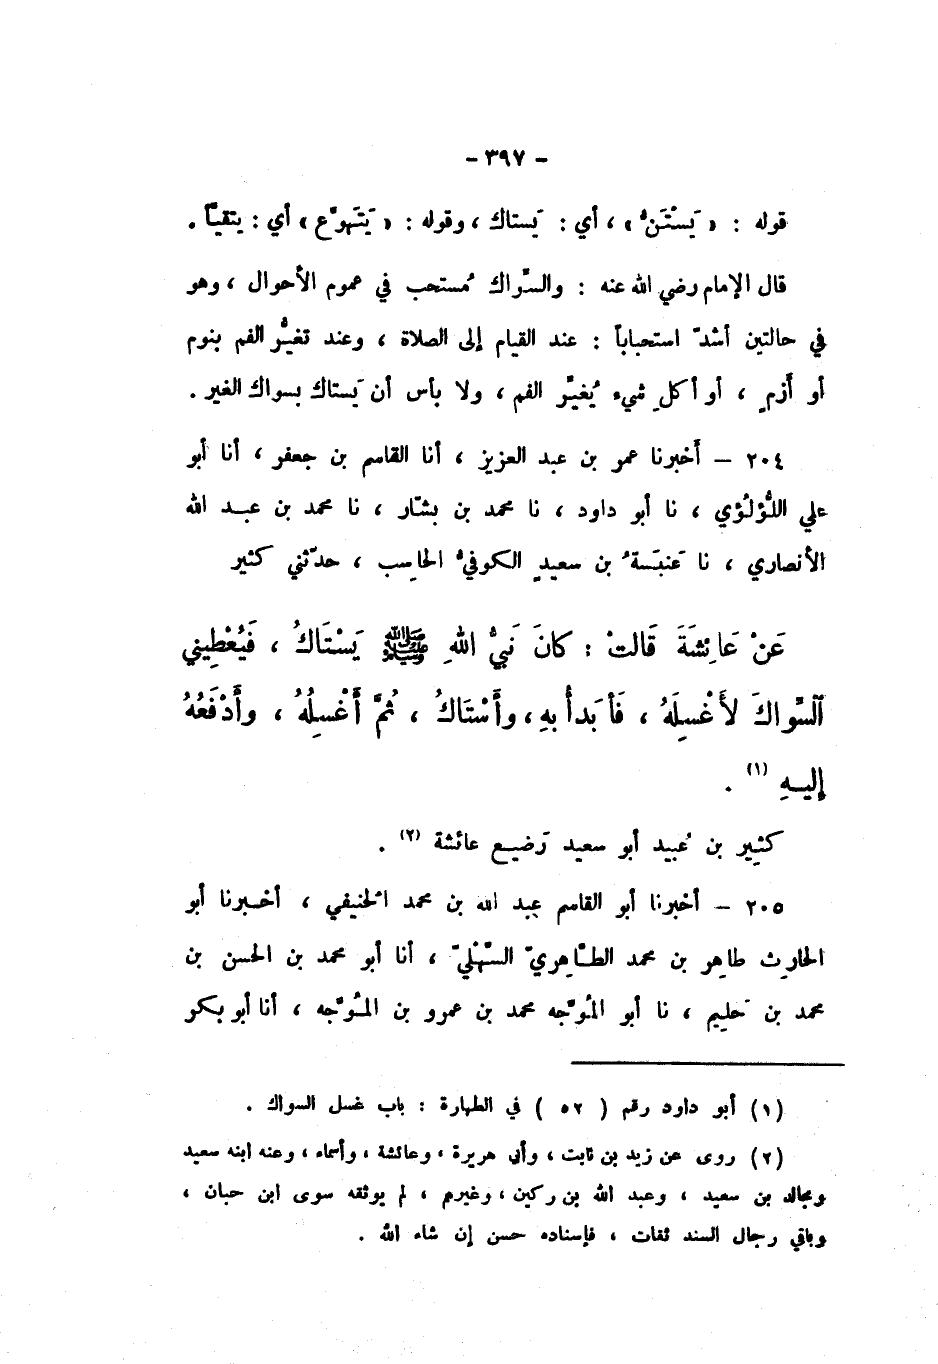 - ٣٩٧ -
قوله : « يَسْتَنُّ » ، أي : يَستاك ، وقوله : « يَتَهَوَّع » أي : يتقيّأ .
قال الإمام رضي الله عنه : والسِّواك مُستحب في عموم الأحوال ، وهو
في حالتين أشدّ استحباباً : عند القيام إلى الصلاة ، وعند تغيُّر الفم بنوم
أو أَزمٍ ، أو أكلِ شيء يُغيِّر الفم ، ولا بأس أن يَستاك بسواك الغير .
٢٠٤ – أَخبرنا عمر بن عبد العزيز ، أنا القاسم بن جعفر ، أنا أبو
علي اللُّؤلُؤي ، نا أبو داود ، نا محمد بن بشّار ، نا محمد بن عبد الله
الأنصاري ، نا عَنبَسَةُ بن سعيدٍ الكوفيُّ الحاسِب ، حدّثني كثير
عَنْ عَائِشَةَ قَالتْ : كانَ نَبيُّ اللهِ ﷺ يَسْتَاكُ ، فَيُعْطِيني
ٱلسِّواكَ لأَغْسِلَهُ ، فَأبَدأُ بهِ ، وأَسْتَاكُ ، ثُمَّ أَغْسِلُهُ ، وأَدْفَعُهُ
إليهِ (١) .
كثِير بن عُبيد أبو سعيد رَضيع عائشة (٢) .
٢٠٥ – أخبرنا أبو القاسم عبد الله بن محمد الحَنيفي ، أخبرنا أبو
الحارِث طاهِر بن محمد الطّاهِريّ السَّهْليّ ، أنا أبو محمد بن الحسن بن
محمد بن حَلِيم ، نا أبو المُوَجِّه محمد بن عمرو بن المُوَجِّه ، أنا أبو بكر
(١) أبو داود رقم ( ٥٢ ) في الطهارة : باب غسل السواك .
(٢) روى عن زيد بن ثابت ، وأبي هريرة ، وعائشة ، وأسماء ، وعنه ابنه سعيد
ومجالد بن سعيد ، وعبد الله بن ركين ، وغيرم ، لم يوثقه سوى ابن حبان ،
وباقي رجال السند ثقات ، فإسناده حسن إن شاء الله .